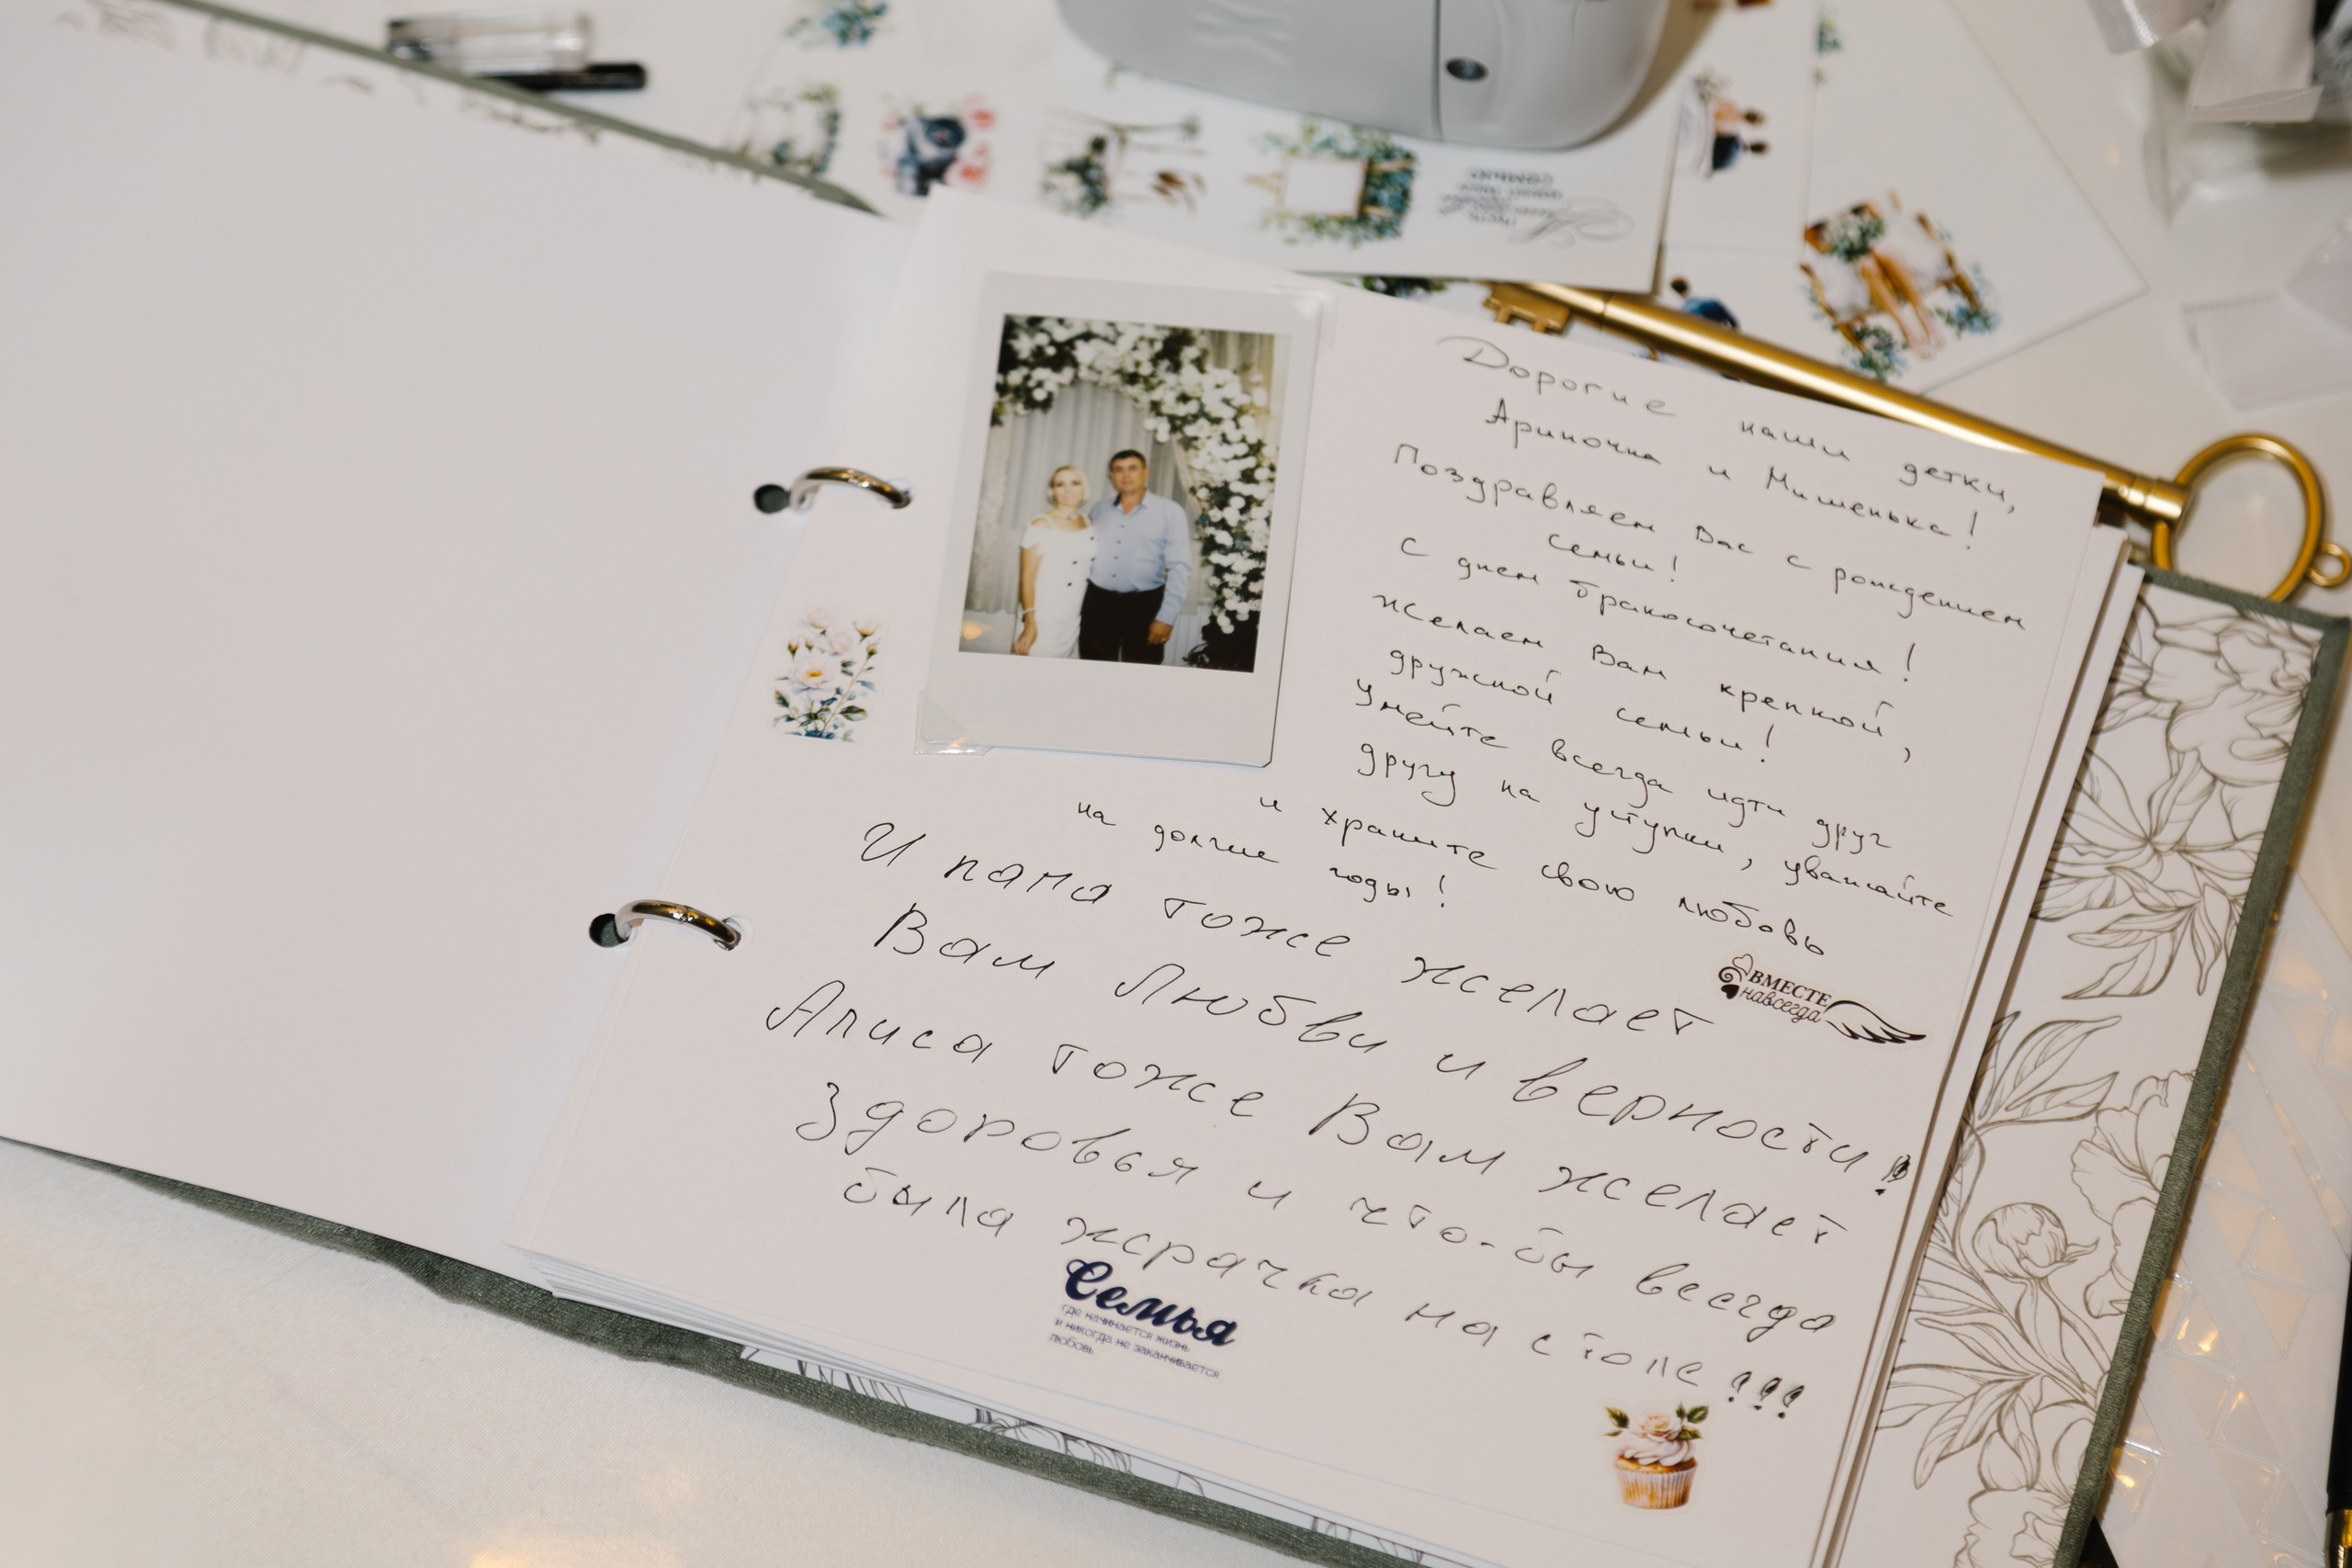 Дорогие наши детки,
Ариночка и Мишенька!
Поздравляем Вас с рождением
семьи!
С днем бракосочетания!
Желаем Вам крепкой,
дружной семьи!
Умейте всегда идти друг
другу на уступки, уважайте
и храните свою любовь
на долгие годы!
И папа тоже желает
Вам Любви и верности!!
Алиса тоже Вам желает
Здоровья и что-бы всегда
была жрачка на столе!!!
ВМЕСТЕ
навсегда
Семья
где начинается жизнь
и никогда не заканчивается
любовь